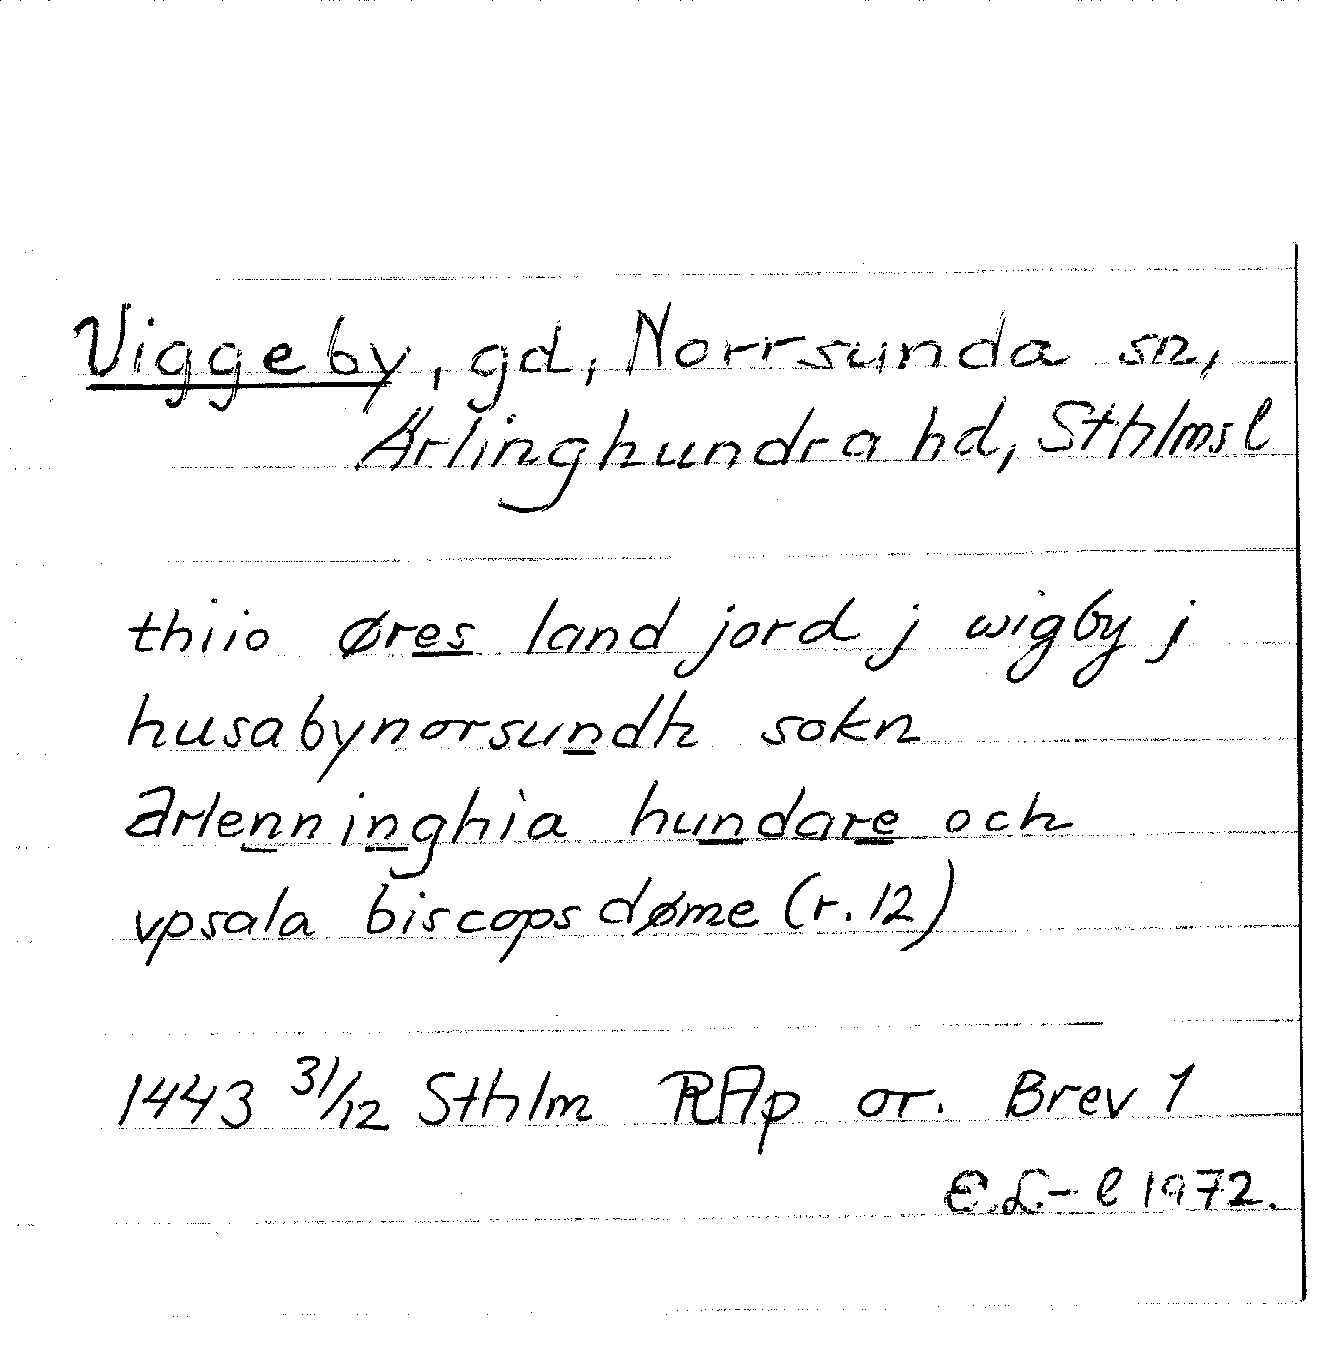 Viggeby, gd, Norrsunda sn,
Ärlinghundra hd, Sthlms l
thiio øres land jord j wigby j
husabynorsundh sokn
ärlenninghia hundare och
vpsala biscopsdøme (r. 12)
1443 31/12 Sthlm RAp or. Brev 1
E.L-l 1972.